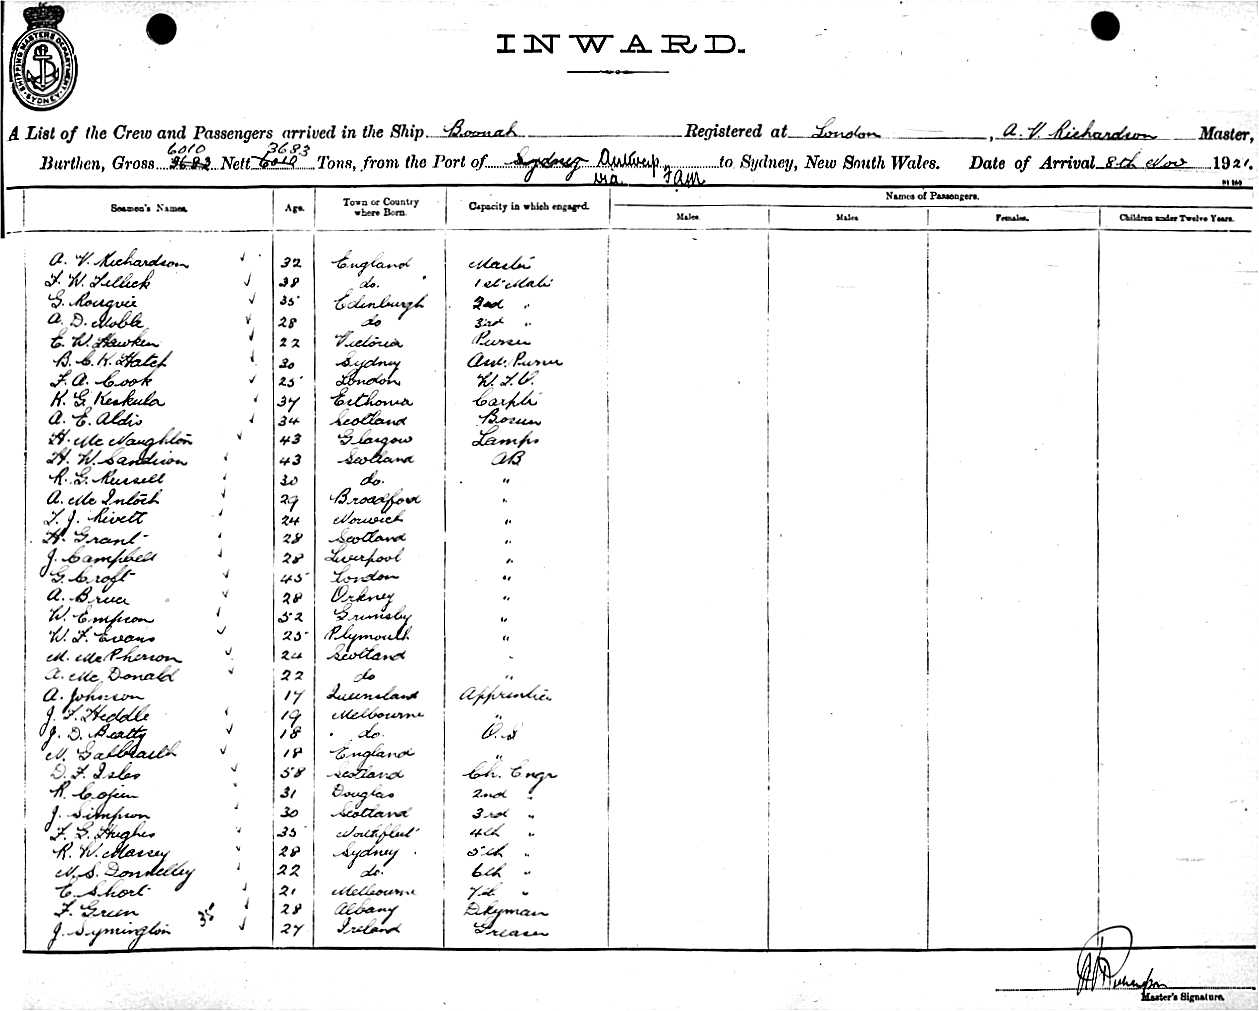 SHIPPING MASTERS DEPARTMENT SYDNEY
INWARD.
A List of the Crew and Passengers arrived in the Ship Boonah Registered at London, A. V. Richardson Master,
6010 3683
Burthen, Gross 3683 Nett 6010 Tons, from the Port of Sydney Antwerp to Sydney, New South Wales. Date of Arrival 8th Nov 192
via
Seamen's Names. Age. Town or Country where Born. Capacity in which engaged. Names of Passengers.
Males. Males. Females. Children under Twelve Years.
A. V. Richardson 32 England Master
F. W. Tellick 38 do. 1st Mate
G. Mouqvie 35 Edinburgh 2nd "
A. D. Noble 28 do 3rd "
E. W. Hawken 22 Victoria Purser
B. C. K. Hatch 30 Sydney Asst. Purser
F. A. Cook 25 London W. T. O.
K. G. Keskula 37 Esthonia Carptr
A. E. Aldis 34 Scotland Bosun
H. McNaughton 43 Glasgow Lamps
H. W. Sandison 43 Scotland AB
R. G. Russell 30 do. "
A. McIntosh 29 Broadford "
T. J. Rivett 24 Norwich "
H. Grant 28 Scotland "
J. Campbell 28 Liverpool "
G. Croft 45 London "
A. Bruce 28 Orkney "
W. Empson 52 Grimsby "
W. F. Evans 25 Plymouth "
M. McPherson 24 Scotland "
A. McDonald 22 do "
A. Johnson 17 Queensland Apprentice
J. F. Heddle 19 Melbourne "
J. D. Beatty 18 do. O.S
N. Galbraith 18 England "
D. F. Isles 58 Scotland Ch. Engr
R. 31 Douglas 2nd "
J. Simpson 30 Scotland 3rd "
F. G. Hughes 35 Northfleet 4th "
R. W. Massey 28 Sydney 5th "
N. S. Donnelley 22 do. 6th "
E. Short 21 Melbourne 7th "
F. Green 28 Albany Dkyman
J. Symington 35 27 Ireland Greaser
Master's Signature.